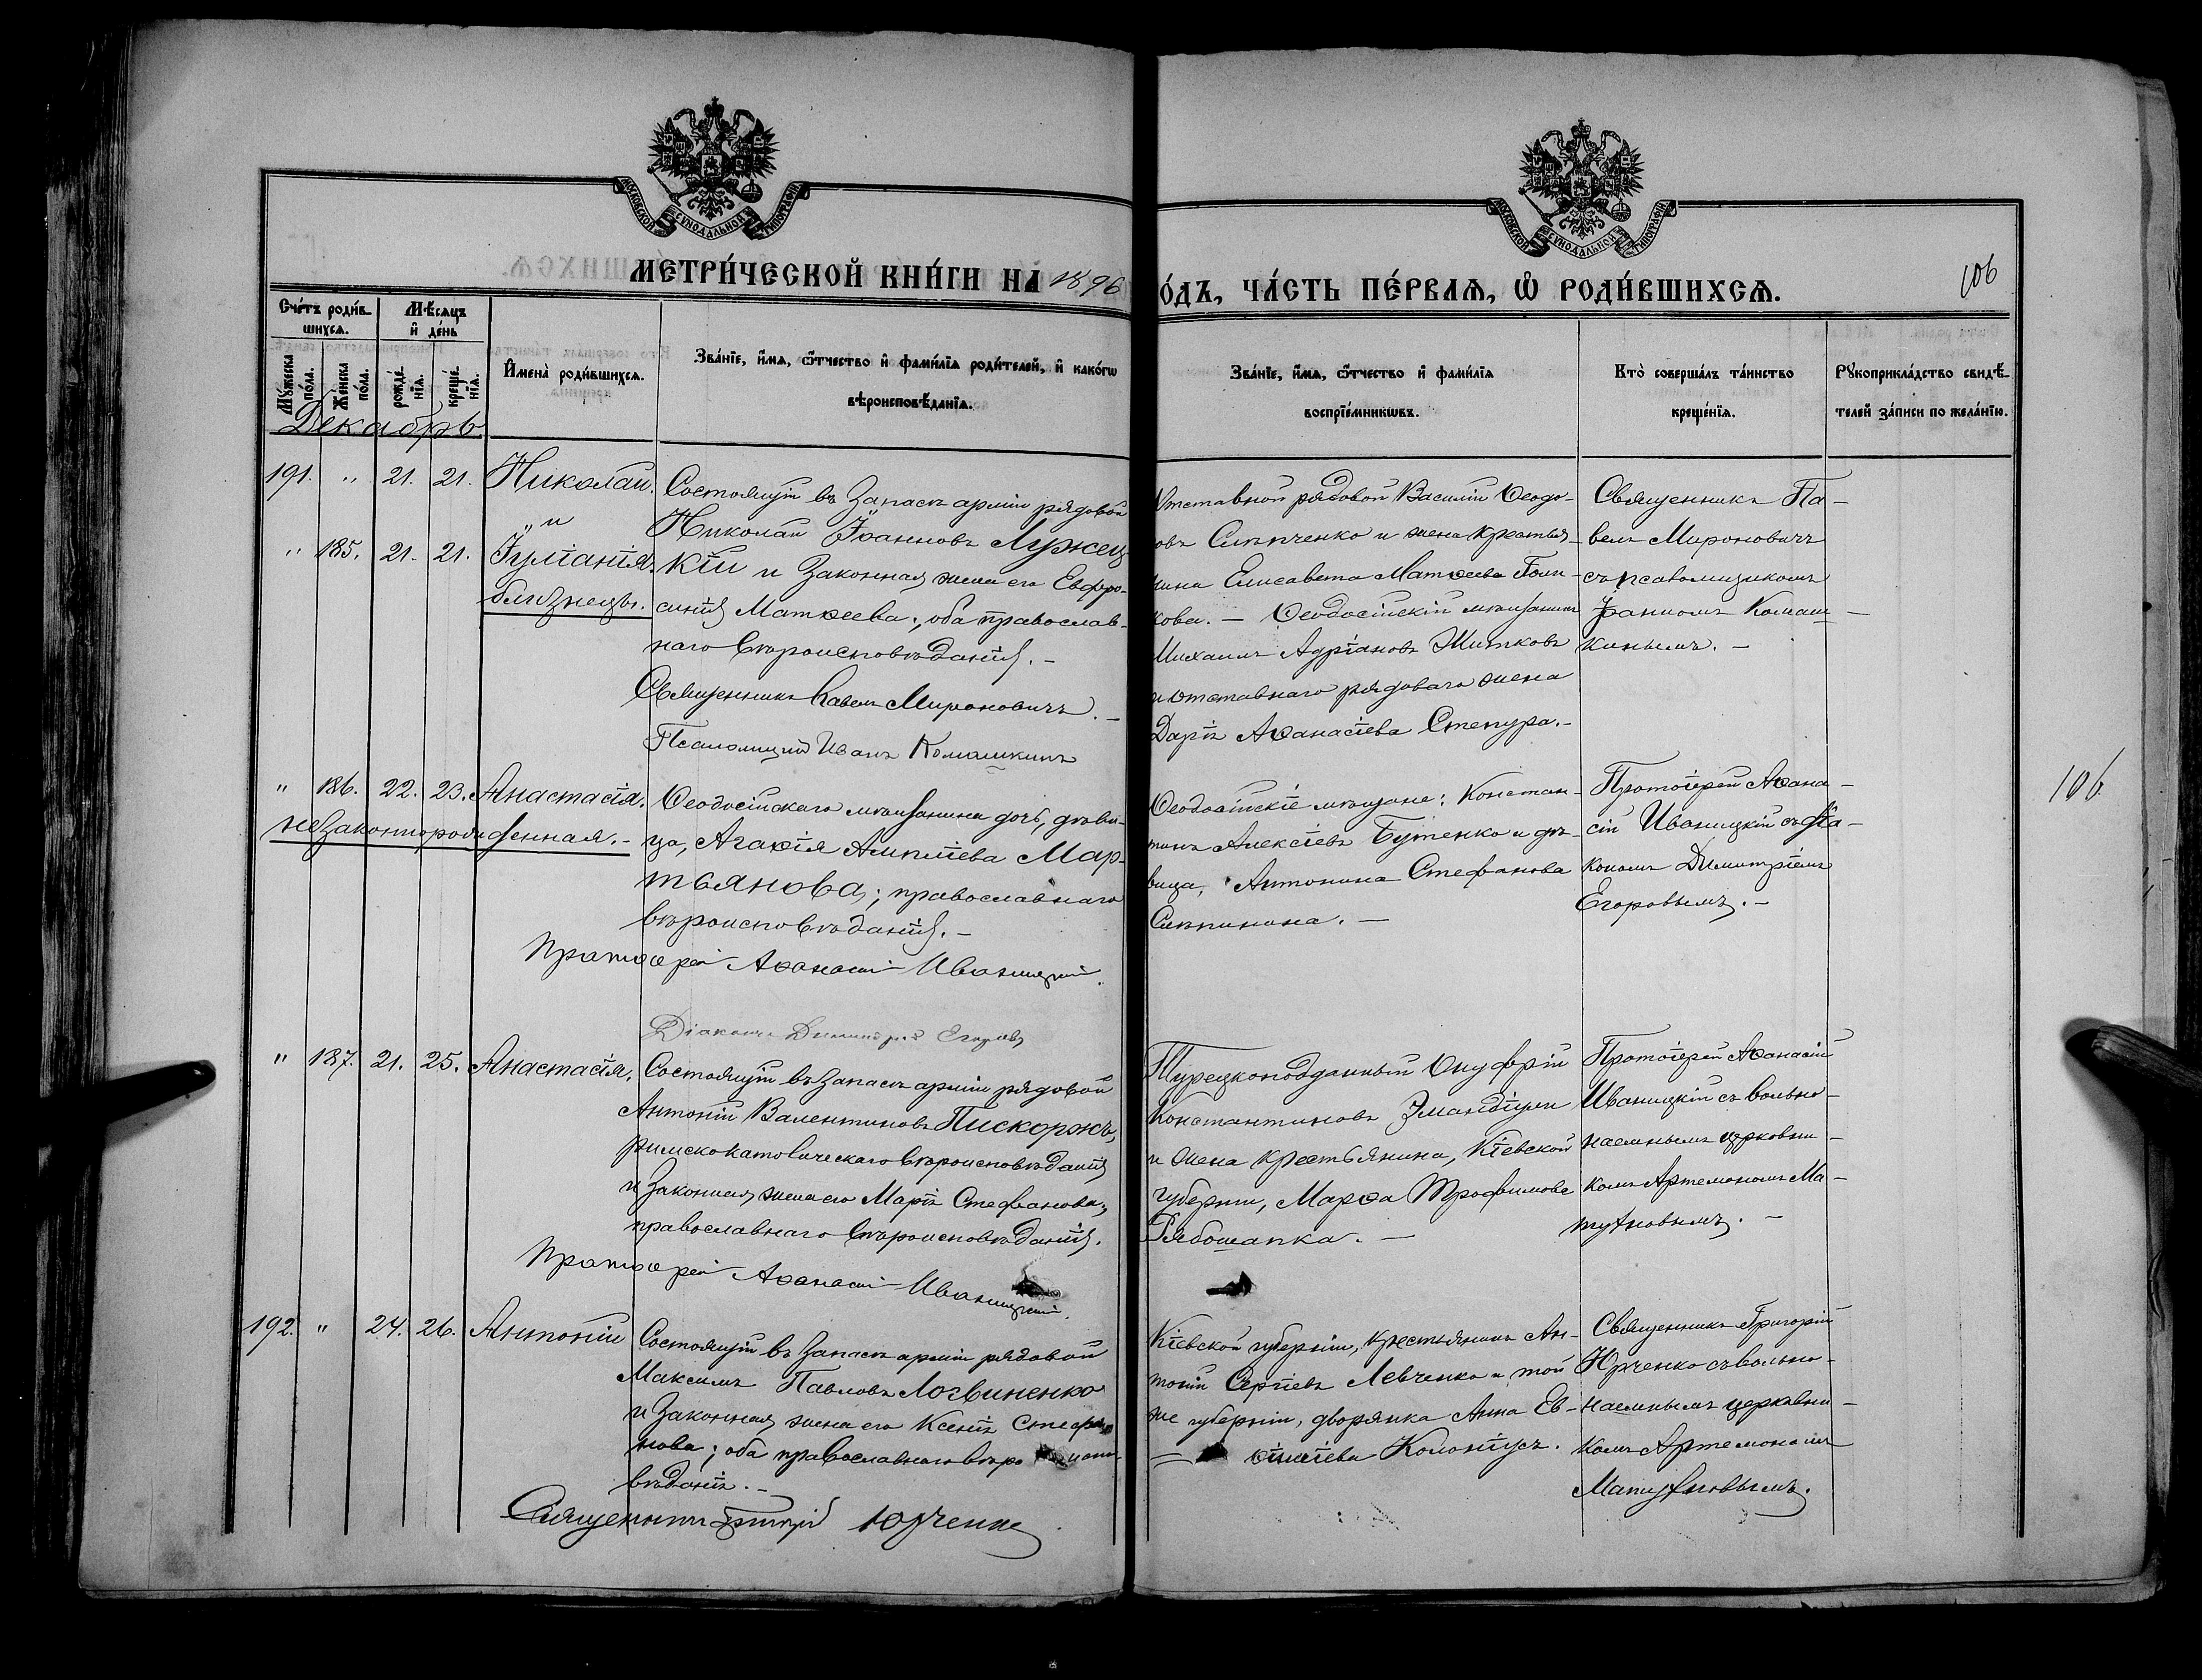 МОСКОВСКОЙ СѴНОДАЛЬНОЙ ТИПОГРАФІИ
МОСКОВСКОЙ СѴНОДАЛЬНОЙ ТИПОГРАФІИ
МЕТРИ́ЧЕСКОЙ КНИ́ГИ НА 1896
О́ДЪ, ЧА́СТЬ ПЕ́РВАѦ, Ѡ҆ РОДИ́ВШИХСѦ.
106
Сче́тъ роди́в-
шихсѧ.
Мѣ́сѧцъ
и҆ де́нь
Мꙋ́жеска по́ла.
Же́нска по́ла.
рожде́нїѧ.
креще́нїѧ.
И҆мена̀ роди́вшихсѧ.
Зва́нїе, и҆́мѧ, ѻ҆́тчество и҆ фами́лїѧ роди́телей, и҆ како́гѡ
вѣроисповѣ́данїѧ.
Зва́нїе, и҆́мѧ, ѻ҆́тчество и҆ фами́лїѧ
воспрїе́мникѡвъ.
Кто̀ соверша́лъ та́инство
креще́нїѧ.
Рꙋкоприкла́дство свидѣ́-
телей за́писи по жела́нїю.
Декабрь
191. " 21. 21. Николай.
„и
" 185. 21. 21. Іуліанія.
близнецы.
Состоящій въ запасѣ арміи рядовой
Николай Іоанновъ Лужец-
кій и законная жена его Евфро-
синія Матѳеева; оба православ-
наго вѣроисповѣданія. –
Священникъ Павелъ Мироновичъ. –
Псаломщикъ Иванъ Комашкинъ
Отставной рядовой Василій Ѳеодо-
овъ Слѣпченко и жена крестья-
нина Елисавета Матѳеева Голи-
кова. – Ѳеодосійскій мѣщанинъ
Михаилъ Адріановъ Житковъ
и отставнаго рядоваго жена
Дарія Аѳанасіева Степура. –
Священникъ Па-
велъ Мироновичъ
съ псаломщикомъ
Іоанномъ Комаш-
кинымъ. –
" 186. 22. 23. Анастасія.
незаконнорожденная. –
Ѳеодосійскаго мѣщанина дочь, дѣви-
ца, Агаѳія Амплієва Мар-
тьянова; православнаго
вѣроисповѣданія. –
Протоіерей Аѳанасій Иваницкій.
Діаконъ Димитрій Егоровъ
Ѳеодосійскіе мѣщане: Констан-
тинъ Алексіевъ Бутенко и дѣ-
вица, Антонина Стефанова
Слѣпинина. –
Протоіерей Аѳана-
сій Иваницкій съ діа-
кономъ Димитріемъ
Егоровымъ. –
106
" 187. 21. 25. Анастасія.
Состоящій въ запасѣ арміи рядовой
Антоній Валентиновъ Пискоржъ,
римскокатолическаго вѣроисповѣданія
и законная жена его Марія Стефанова;
православнаго вѣроисповѣданія.
Протоіерей Аѳанасій Иваницкій.
Турецкоподданный Онуфрій
Константиновъ
и жена крестьянина, Кіевской
губерніи, Марѳа Трофимова
Рябошапка. –
Протоіерей Аѳанасій
Иваницкій съ вольно-
наемнымъ церковни-
комъ Артемономъ Ма-
туновымъ. –
192. " 24. 26. Антоній
Состоящій въ запасѣ арміи рядовой
Максимъ Павловъ Логвиненко
и законная жена его Ксенія Стефа-
нова; оба православнаго вѣро испо-
вѣданія. –
Священникъ Григорій Юрченко
Кіевской губерніи, крестьянинъ Ан-
тоній Сергіевъ Левченко и той
же губерніи, дворянка Анна Ев-
ѳиміева
Священникъ Григорій
Юрченко съ вольно-
наемнымъ церковни-
комъ Артемономъ
Матуновымъ.